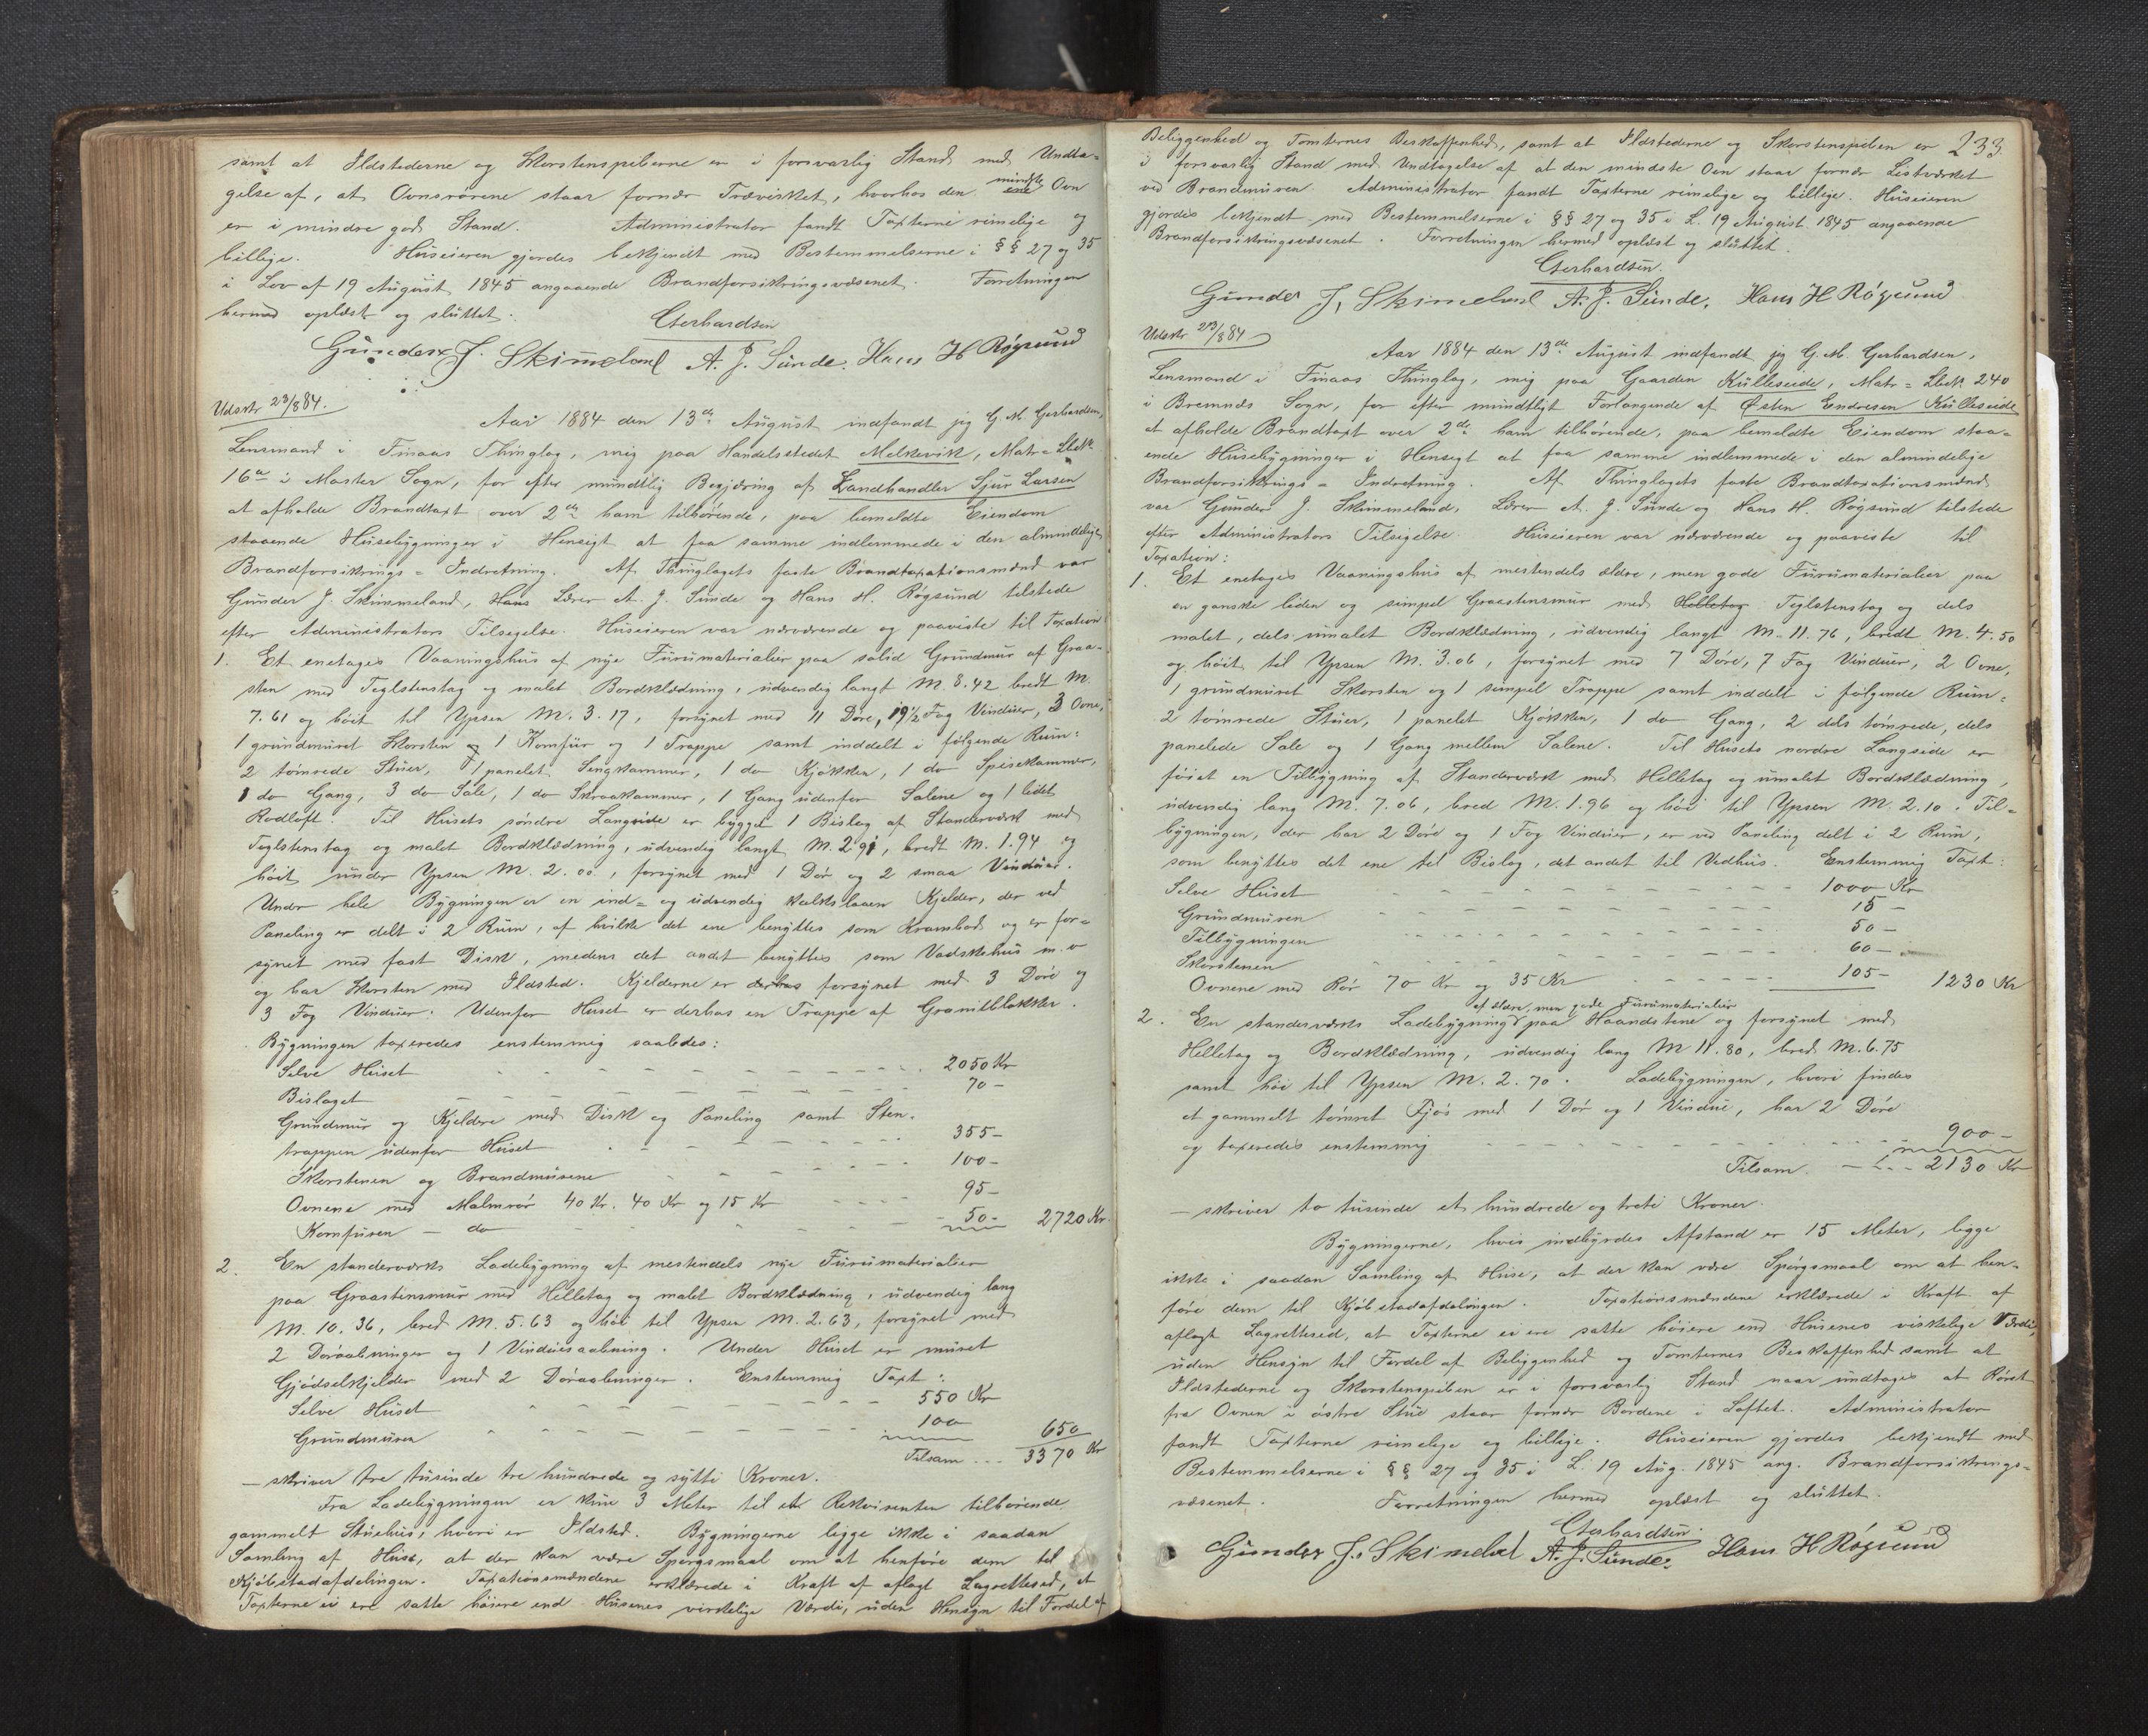 samt at Ildstederne og Skorstenspiberne er i forsvarlig Stand med Undta-
gelse af, at Ovnsrørene staar fornær Trævirket, hvorhos den mindste Ovn
er i mindre god Stand. Administrator fandt Taxterne rimelige og
billige. Huseieren gjordes bekjendt med Bestemmelserne i §§ 27 og 35
i Lov af 19 August 1845 angaaende Brandforsikringsvæsenet. Forretningen
hermed oplæst og sluttet.
Gerhardsen
Gunder J. Skimeland A. J. Sunde. Hans H Røgsund
Udskr 23/8 84.
Aar 1884 den 13de August indfandt jeg G. M. Gerhardsen,
Lensmand i Finaas Thinglag, mig paa Handelsstedet Melkevik, Matr = Lbnr
16a i Moster Sogn, for efter mundtlig Begjæring af Landhandler Sjur Larsen
at afholde Brandtaxt over 2de ham tilhørende, paa bemeldte Eiendom
staaende Husebygninger i Hensigt at faa samme indlemmede i den almindelige
Brandforsikrings = Indretning. Af Thinglagets faste Brandtaxationsmænd var
Gunder J. Skimmeland, Hans Lærer A. J. Sunde og Hans H. Røgsund tilstede
efter Administrators Tilsigelse. Huseieren var nærværende og paaviste til Taxation
1. Et enetages Vaaningshus af nye Furumaterialier paa solid Grundmur af Graa-
sten med Teglstenstag og malet Bordklædning, udvendig langt M. 8.42 bredt M.
7.61 og høit til Ypsen M. 3.17, forsynet med 11 Døre, 19 1/2 Fag Vinduer, 3 Ovne,
1 grundmuret Skorsten og 1 Komfur og 1 Trappe samt inddelt i følgende Rum:
2 tømrede Stuer, 1 panelet Sengkammer, 1 do Kjøkken, 1 do Spisekammer,
1 do Gang, 3 do Sale, 1 do Skraakammer, 1 Gang udenfor Salene og 1 lidet
Rodloft. Til Husets søndre Langside er bygget 1 Bislag af Standerværk med
Teglstenstag og malet Bordklædning, udvendig langt M. 2.91, bredt M. 1.94 og
høit under Ypsen M. 2.00, forsynet med 1 Dør og 2 smaa Vinduer.
Under hele Bygningen er en ind= og udvendig kalkslaaen Kjelder, der ved
Paneling er delt i 2 Rum, af hvilke det ene benyttes som Krambod og er for=
synet med fast Disk, medens det andet benyttes som Vadskehus m. v
og har Skorsten med Ildsted. Kjelderne er derhos forsynet med 3 Døre og
3 Fag Vinduer. Udenfor Huset er derhos en Trappe af Granitblokker.
Bygningen taxeredes enstemmig saaledes:
Selve Huset 2050 Kr
Bislaget 70 -
Grundmur og Kjeldere med Disk og Paneling samt Sten-
trappen udenfor Huset 355 -
Skorstenen og Brandmurene 100 -
Ovnene med Malmrør 40 Kr. 40 Kr og 15 Kr 95 -
Komfuren - do 50 - 2720 Kr.
2. En standerværks Ladebygning af mestendels nye Furumaterialier
paa Graastensmur med Helletag og malet Bordklædning, udvendig lang
M. 10.36, bred M. 5.63 og høi til Ypsen M. 2.63, forsynet med
2 Døraabninger og 1 Vinduesaabning. Under Huset er muret
Gjødselkjelder med 2 Døraabninger. Enstemmig Taxt:
Selve Huset 550 Kr
Grundmuren 100 650
Tilsam ... 3370 Kr
- skriver tre tusinde tre hundrede og sytti Kroner.
Fra Ladebygningen er kun 3 Meter til et Rekvirenten tilhørende
gammelt Stuehus, hvori er Ildsted. Bygningerne ligge ikke i saadan
Samling af Huse, at der kan være Spørgsmaal om at henføre dem til
Kjøbstadafdelingen. Taxationsmændene erklærede i Kraft af aflagt Lagrettesed, at
Taxterne ei ere satte høiere end Husenes virkelige Værdi, uden Hensyn til Fordel af
233
Beliggenhed og Tomternes Beskaffenhed, samt at Ildstederne og Skorstenspiben er
i forsvarlig Stand med Undtagelse af at den mindste Ovn staar fornær Listværket
ved Brandmuren. Administrator fandt Taxterne rimelige og billige. Huseieren
gjordes bekjendt med Bestemmelserne i §§ 27 og 35 i L. 19 August 1845 angaaende
Brandforsikringsvæsenet. Forretningen hermed oplæst og sluttet.
Gerhardsen.
Gunder J. Skimeland A. J. Sunde. Hans H Røgsund
Udskr 23/8 84
Aar 1884 den 13de August indfandt jeg G. M. Gerhardsen,
Lensmand i Finaas Thinglag, mig paa Gaarden Kulleseide, Matr = Lbnr. 240
i Bremnæs Sogn, for efter mundtligt Forlangende af Østen Endresen Kulleseide
at afholde Brandtaxt over 2de ham tilhørende, paa bemeldte Eiendom staa-
ende Husebygninger i Hensigt at faa samme indlemmede i den almindelige
Brandforsikrings = Indretning. Af Thinglagets faste Brandtaxationsmænd
var Gunder J. Skimmeland, Lærer A. J. Sunde og Hans H. Røgsund tilstede
efter Administrators Tilsigelse. Huseieren var nærværende og paaviste til
Taxation:
1. Et enetages Vaaningshus af mestendels ældre, men gode Furumaterialier paa
en ganske liden og simpel Graastensmur med Helletag Teglstenstag og dels
malet, dels umalet Bordklædning, udvendig langt M. 11.76, bredt M. 4.50
og høit til Ypsen M. 3.06, forsynet med 7 Døre, 7 Fag Vinduer, 2 Ovne,
1 grundmuret Skorsten og 1 simpel Trappe samt inddelt i følgende Rum:
2 tømrede Stuer, 1 panelet Kjøkken, 1 do Gang, 2 dels tømrede, dels
panelede Sale og 1 Gang mellem Salene. Til Husets nordre Langside er
føiet en Tilbygning af Standerværk med Helletag og umalet Bordklædning,
udvendig lang M. 7.06, bred M. 1.96 og høi til Ypsen M. 2.10. Til-
bygningen, der har 2 Døre og 1 Fag Vinduer, er ved Paneling delt i 2 Rum,
som benyttes det ene til Bislag, det andet til Vedhus. Enstemmig Taxt:
Selve Huset 1000 Kr
Grundmuren 15 -
Tilbygningen 50 -
Skorstenen 60 -
Ovnene med Rør 70 Kr og 35 Kr 105 - 1230 Kr
af ældre, men gode Furumaterialier
2. En standerværks Ladebygning paa Haandstene og forsynet med
Helletag og Bordklædning, udvendig lang M 11.80, bred M. 6.75
samt høi til Ypsen M. 2.70. Ladebygningen, hvori findes
et gammelt tømret Fjøs med 1 Dør og 1 Vindue, har 2 Døre
og taxeredes enstemmig 900 -
Tilsam. 2130 Kr
- skriver to tusinde et hundrede og treti Kroner.
Bygningerne, hvis indbyrdes Afstand er 15 Meter, ligge
ikke i saadan Samling af Huse, at der kan være Spørgsmaal om at hen-
føre dem til Kjøbstadafdelingen. Taxationsmændene erklærede i Kraft af
aflagt Lagrettesed, at Taxterne ei ere satte høiere end Husenes virkelige Værdi,
uden Hensyn til Fordel af Beliggenhed og Tomternes Beskaffenhed samt at
Ildstederne og Skorstenspiben er i forsvarlig Stand naar undtages at Røret
fra Ovnen i østre Stue staar fornær Bordene i Loftet. Administrator
fandt Taxterne rimelige og billige. Huseieren gjordes bekjendt med
Bestemmelserne i §§ 27 og 35 i L. 19 Aug. 1845 ang. Brandforsikrings-
væsenet. Forretningen hermed oplæst og sluttet.
Gerhardsen.
Gunder J. Skimeland A. J. Sunde. Hans H Røgsund